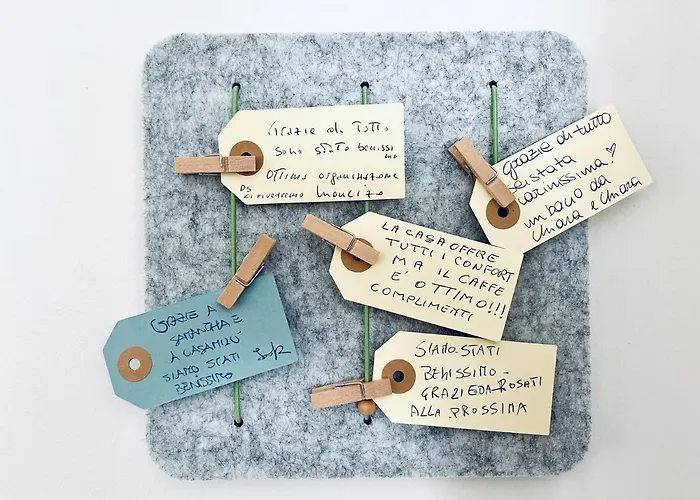 Grazie di Tutto
sono stato benissi
mo
Ottima organizzazione
PS
ci rivedremo Maurizio
grazie di tutto
sei stata
carinissima! ♡
un bacio da
Chiara e Chiara
LA CASA OFFRE
TUTTI I CONFORT
MA IL CAFFE
E' OTTIMO!!!
COMPLIMENTI
GRAZIE A
SAMANTHA E
A CASAMILÙ
SIAMO STATI
BENISSIMO
SIAMO STATI
BENISSIMO -
GRAZIE DA ROSATI
ALLA PROSSIMA